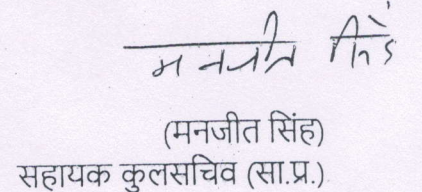 मनजीत सिंह
(मनजीत सिंह)
सहायक कुलसचिव (सा.प्र.)